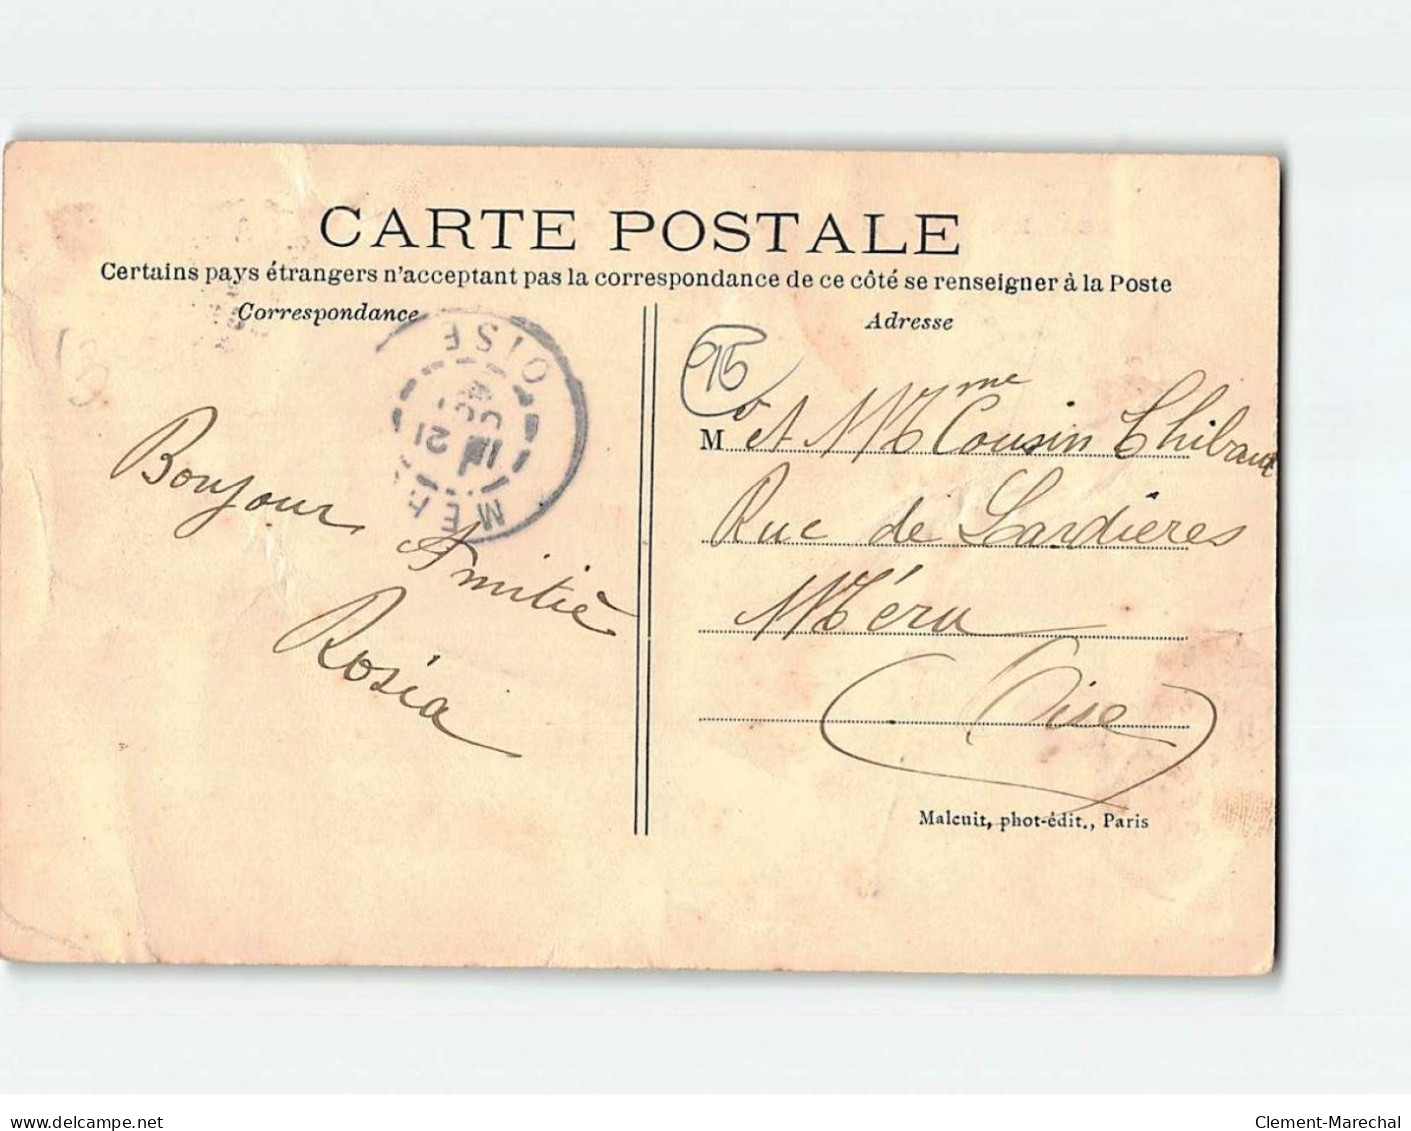 CARTE POSTALE
Certains pays étrangers n'acceptant pas la correspondance de ce côté se renseigner à la Poste
Correspondance
Adresse
OISE
21
95
Bonjour
Amitié
Rosia
M et Mme Cousin Thibaut
Rue de Lardieres
Méru
Oise
Malcuit, phot-édit., Paris
www.delcampe.net
Clement-Marechal